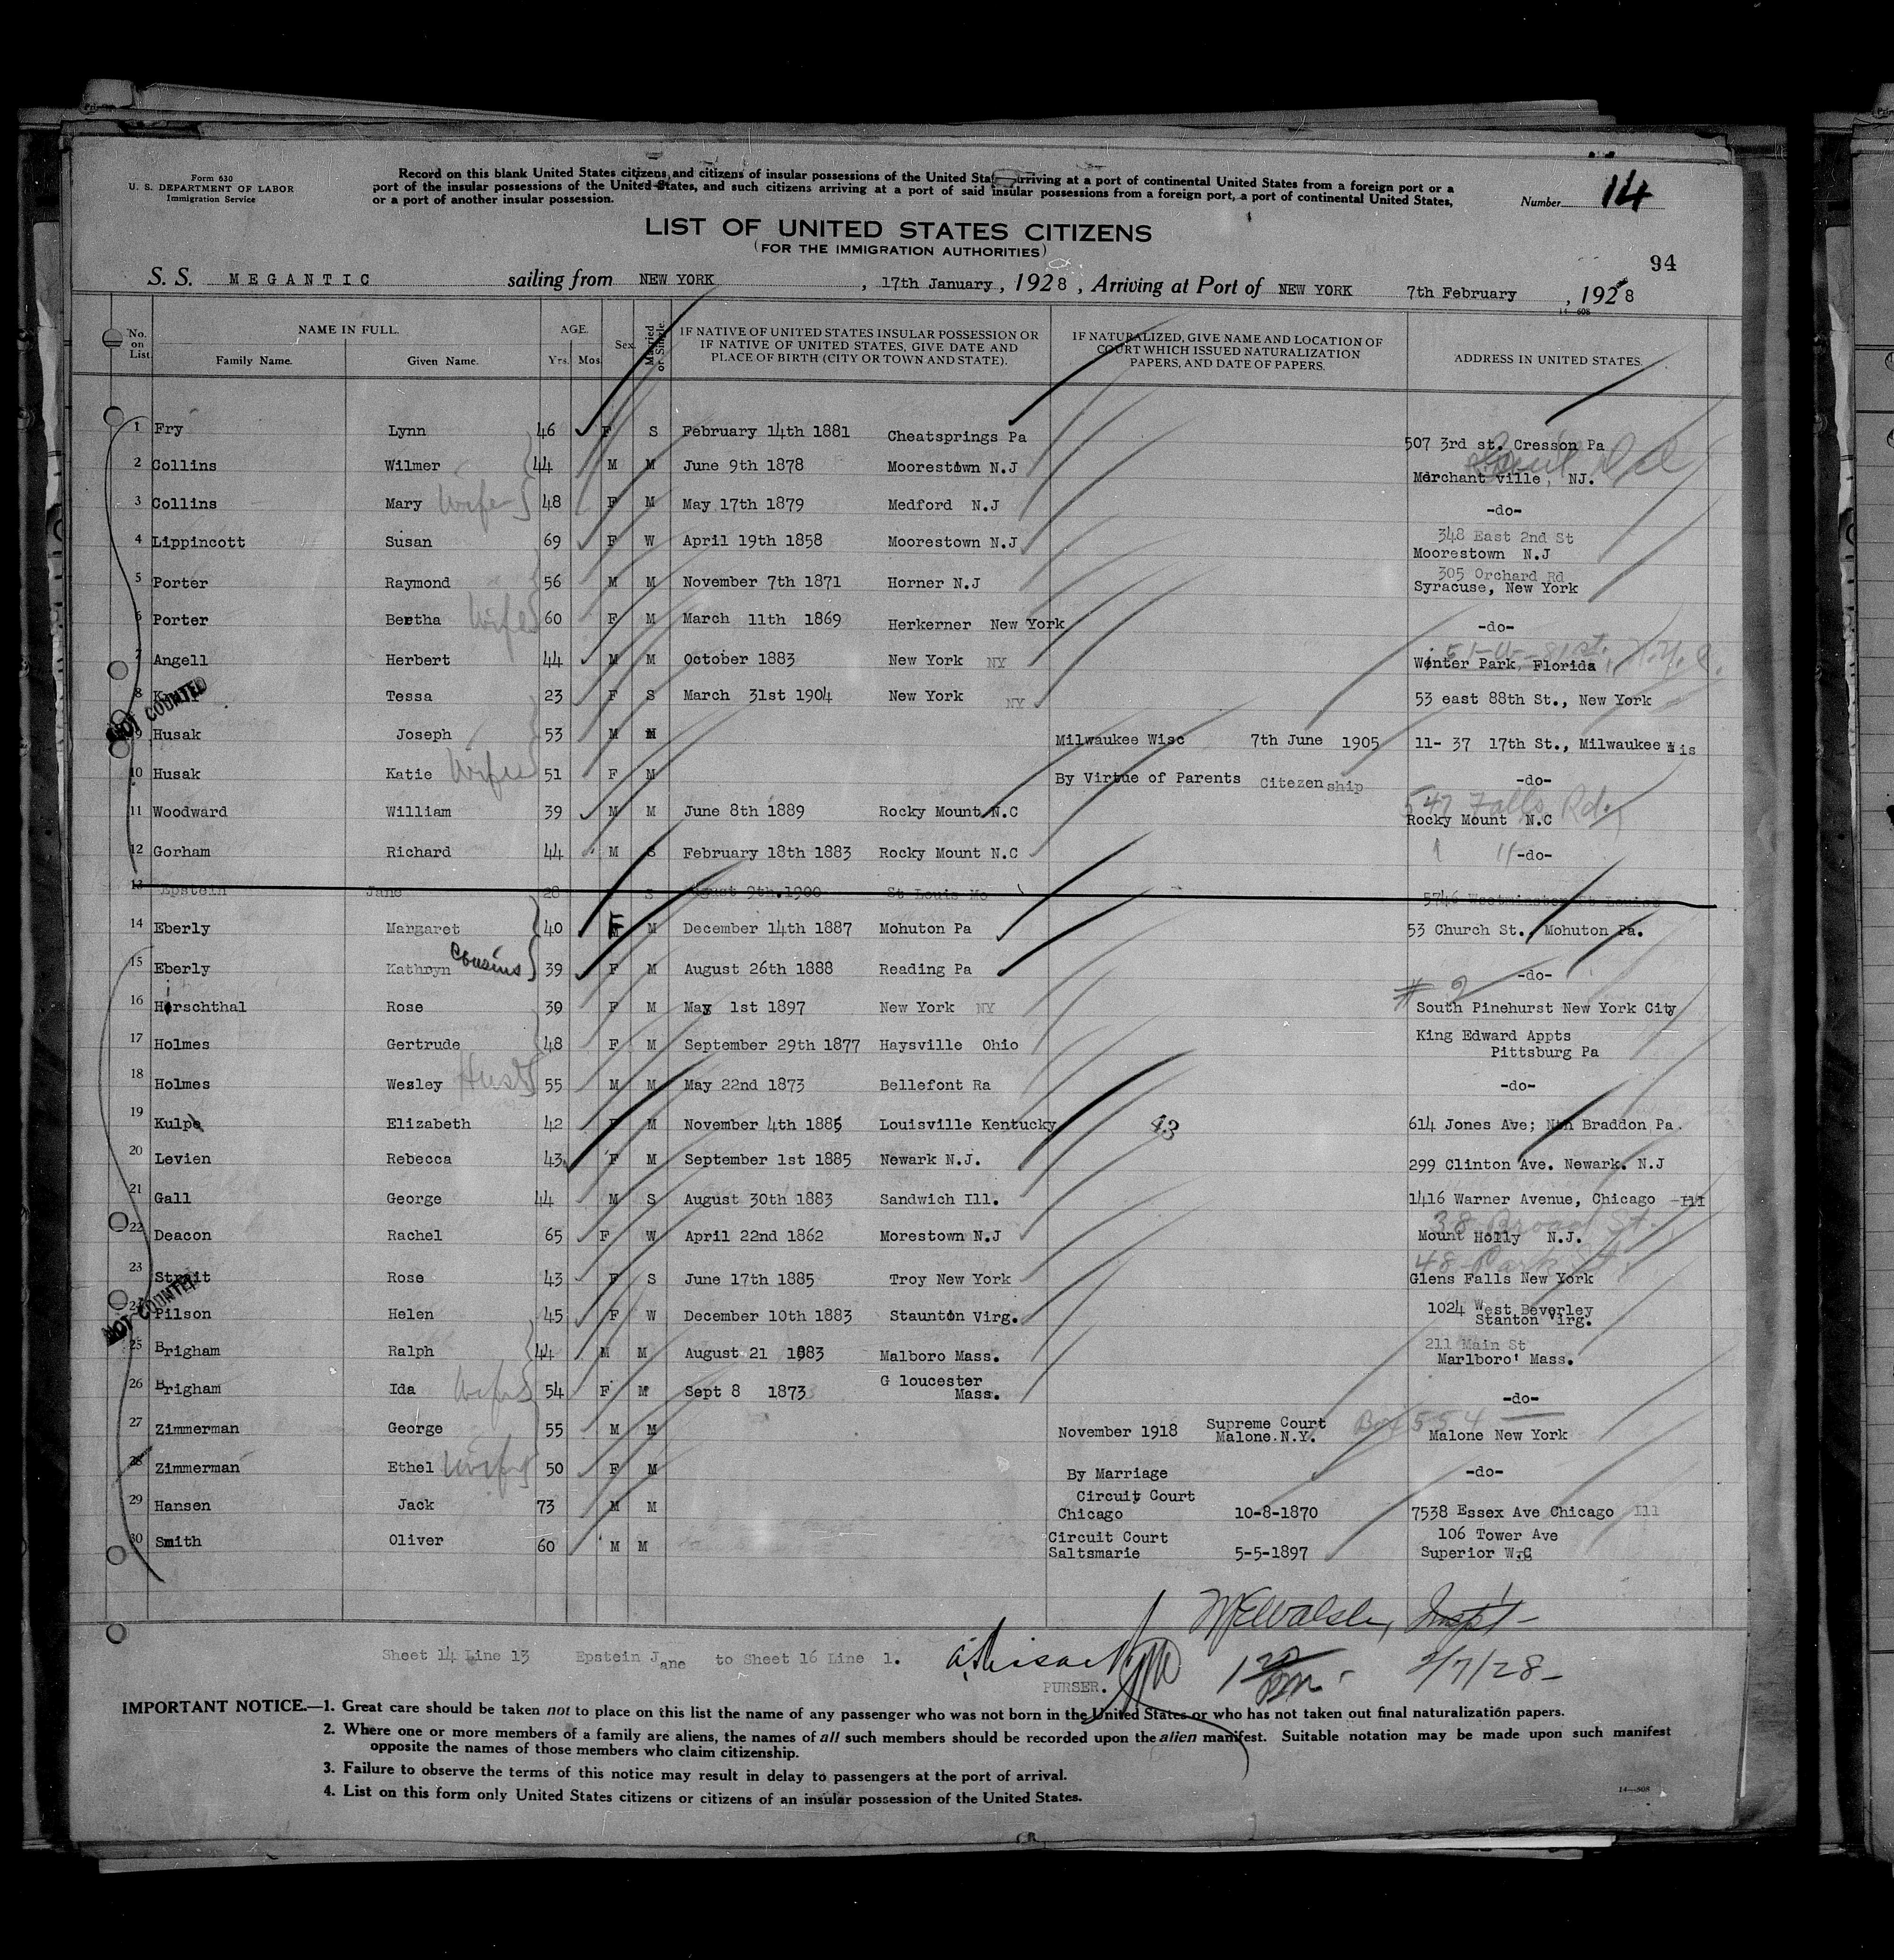 Form 630
U. S. DEPARTMENT OF LABOR
Immigration Service
Record on this blank United States citizens and citizens of insular possessions of the United Sta arriving at a port of continental United States from a foreign port or a
port of the insular possessions of the United States, and such citizens arriving at a port of said insular possessions from a foreign port, a port of continental United States,
or a port of another insular possession.
Number 14
LIST OF UNITED STATES CITIZENS
(FOR THE IMMIGRATION AUTHORITIES)
94
S. S. MEGANTIC sailing from NEW YORK, 17th January, 1928, Arriving at Port of NEW YORK 7th February, 1928
14-608
No. on List. NAME IN FULL. Family Name. Given Name. AGE. Yrs. Mos. Sex. Married or Single. IF NATIVE OF UNITED STATES INSULAR POSSESSION OR IF NATIVE OF UNITED STATES, GIVE DATE AND PLACE OF BIRTH (CITY OR TOWN AND STATE). IF NATURALIZED, GIVE NAME AND LOCATION OF COURT WHICH ISSUED NATURALIZATION PAPERS, AND DATE OF PAPERS. ADDRESS IN UNITED STATES.
1 Fry Lynn 46 F S February 14th 1881 Cheatsprings Pa 507 3rd st. Cresson Pa
2 Collins Wilmer 44 M M June 9th 1878 Moorestown N.J Merchant ville, NJ.
3 Collins Mary Wife 48 F M May 17th 1879 Medford N.J -do-
4 Lippincott Susan 69 F W April 19th 1858 Moorestown N.J 348 East 2nd St Moorestown N.J
5 Porter Raymond 56 M M November 7th 1871 Horner N.J 305 Orchard Rd Syracuse, New York
6 Porter Bertha Wife 60 F M March 11th 1869 Herkerner New York -do-
7 Angell Herbert 44 M M October 1883 New York NY 51-W-81st, N.Y.C. Winter Park, Florida
8 Tessa 23 F S March 31st 1904 New York NY 53 east 88th St., New York
NOT COUNTED
9 Husak Joseph 53 M M Milwaukee Wisc 7th June 1905 11- 37 17th St., Milwaukee Wis
10 Husak Katie Wife 51 F M By Virtue of Parents Citezen ship -do-
11 Woodward William 39 M M June 8th 1889 Rocky Mount N.C 547 Falls Rd. Rocky Mount N.C
12 Gorham Richard 44 M S February 18th 1883 Rocky Mount N.C -do-
13 Epstein Jane 28 S August 9th.1900 St Louis Mo 5746 Westminster St Louis
14 Eberly Margaret 40 F M December 14th 1887 Mohuton Pa 53 Church St., Mohuton Pa.
15 Eberly Kathryn Cousins 39 F M August 26th 1888 Reading Pa -do-
16 Hirschthal Rose 30 F M May 1st 1897 New York NY # 2 South Pinehurst New York City
17 Holmes Gertrude 48 F M September 29th 1877 Haysville Ohio King Edward Appts Pittsburg Pa
18 Holmes Wesley Husb 55 M M May 22nd 1873 Bellefont Ra -do-
19 Kulp Elizabeth 42 F M November 4th 1885 Louisville Kentucky 43 614 Jones Ave; Nth Braddon Pa.
20 Levien Rebecca 43 F M September 1st 1885 Newark N.J. 299 Clinton Ave. Newark. N.J
21 Gall George 44 M S August 30th 1883 Sandwich Ill. 1416 Warner Avenue, Chicago -Ill
22 Deacon Rachel 65 F W April 22nd 1862 Morestown N.J 38 Broad St. Mount Holly N.J.
23 Strait Rose 43 F S June 17th 1885 Troy New York 48 Park St. Glens Falls New York
NOT COUNTED
24 Pilson Helen 45 F W December 10th 1883 Staunton Virg. 1024 West Beverley Stanton Virg.
25 Brigham Ralph 44 M M August 21 1883 Malboro Mass. 211 Main St Marlboro' Mass.
26 Brigham Ida Wife 54 F M Sept 8 1873 Gloucester Mass. -do-
27 Zimmerman George 55 M M November 1918 Supreme Court Malone.N.Y. Box 554 Malone New York
28 Zimmerman Ethel Wife 50 F M By Marriage -do-
29 Hansen Jack 73 M M Circuit Court Chicago 10-8-1870 7538 Essex Ave Chicago Ill
30 Smith Oliver 60 M M Circuit Court Saltsmarie 5-5-1897 106 Tower Ave Superior W.C
Sheet 14 Line 13 Epstein Jane to Sheet 16 Line 1.
PURSER.
McWalsh, Insp't
2/7/28
IMPORTANT NOTICE.—1. Great care should be taken not to place on this list the name of any passenger who was not born in the United States or who has not taken out final naturalization papers.
2. Where one or more members of a family are aliens, the names of all such members should be recorded upon the alien manifest. Suitable notation may be made upon such manifest
opposite the names of those members who claim citizenship.
3. Failure to observe the terms of this notice may result in delay to passengers at the port of arrival.
4. List on this form only United States citizens or citizens of an insular possession of the United States.
14-608